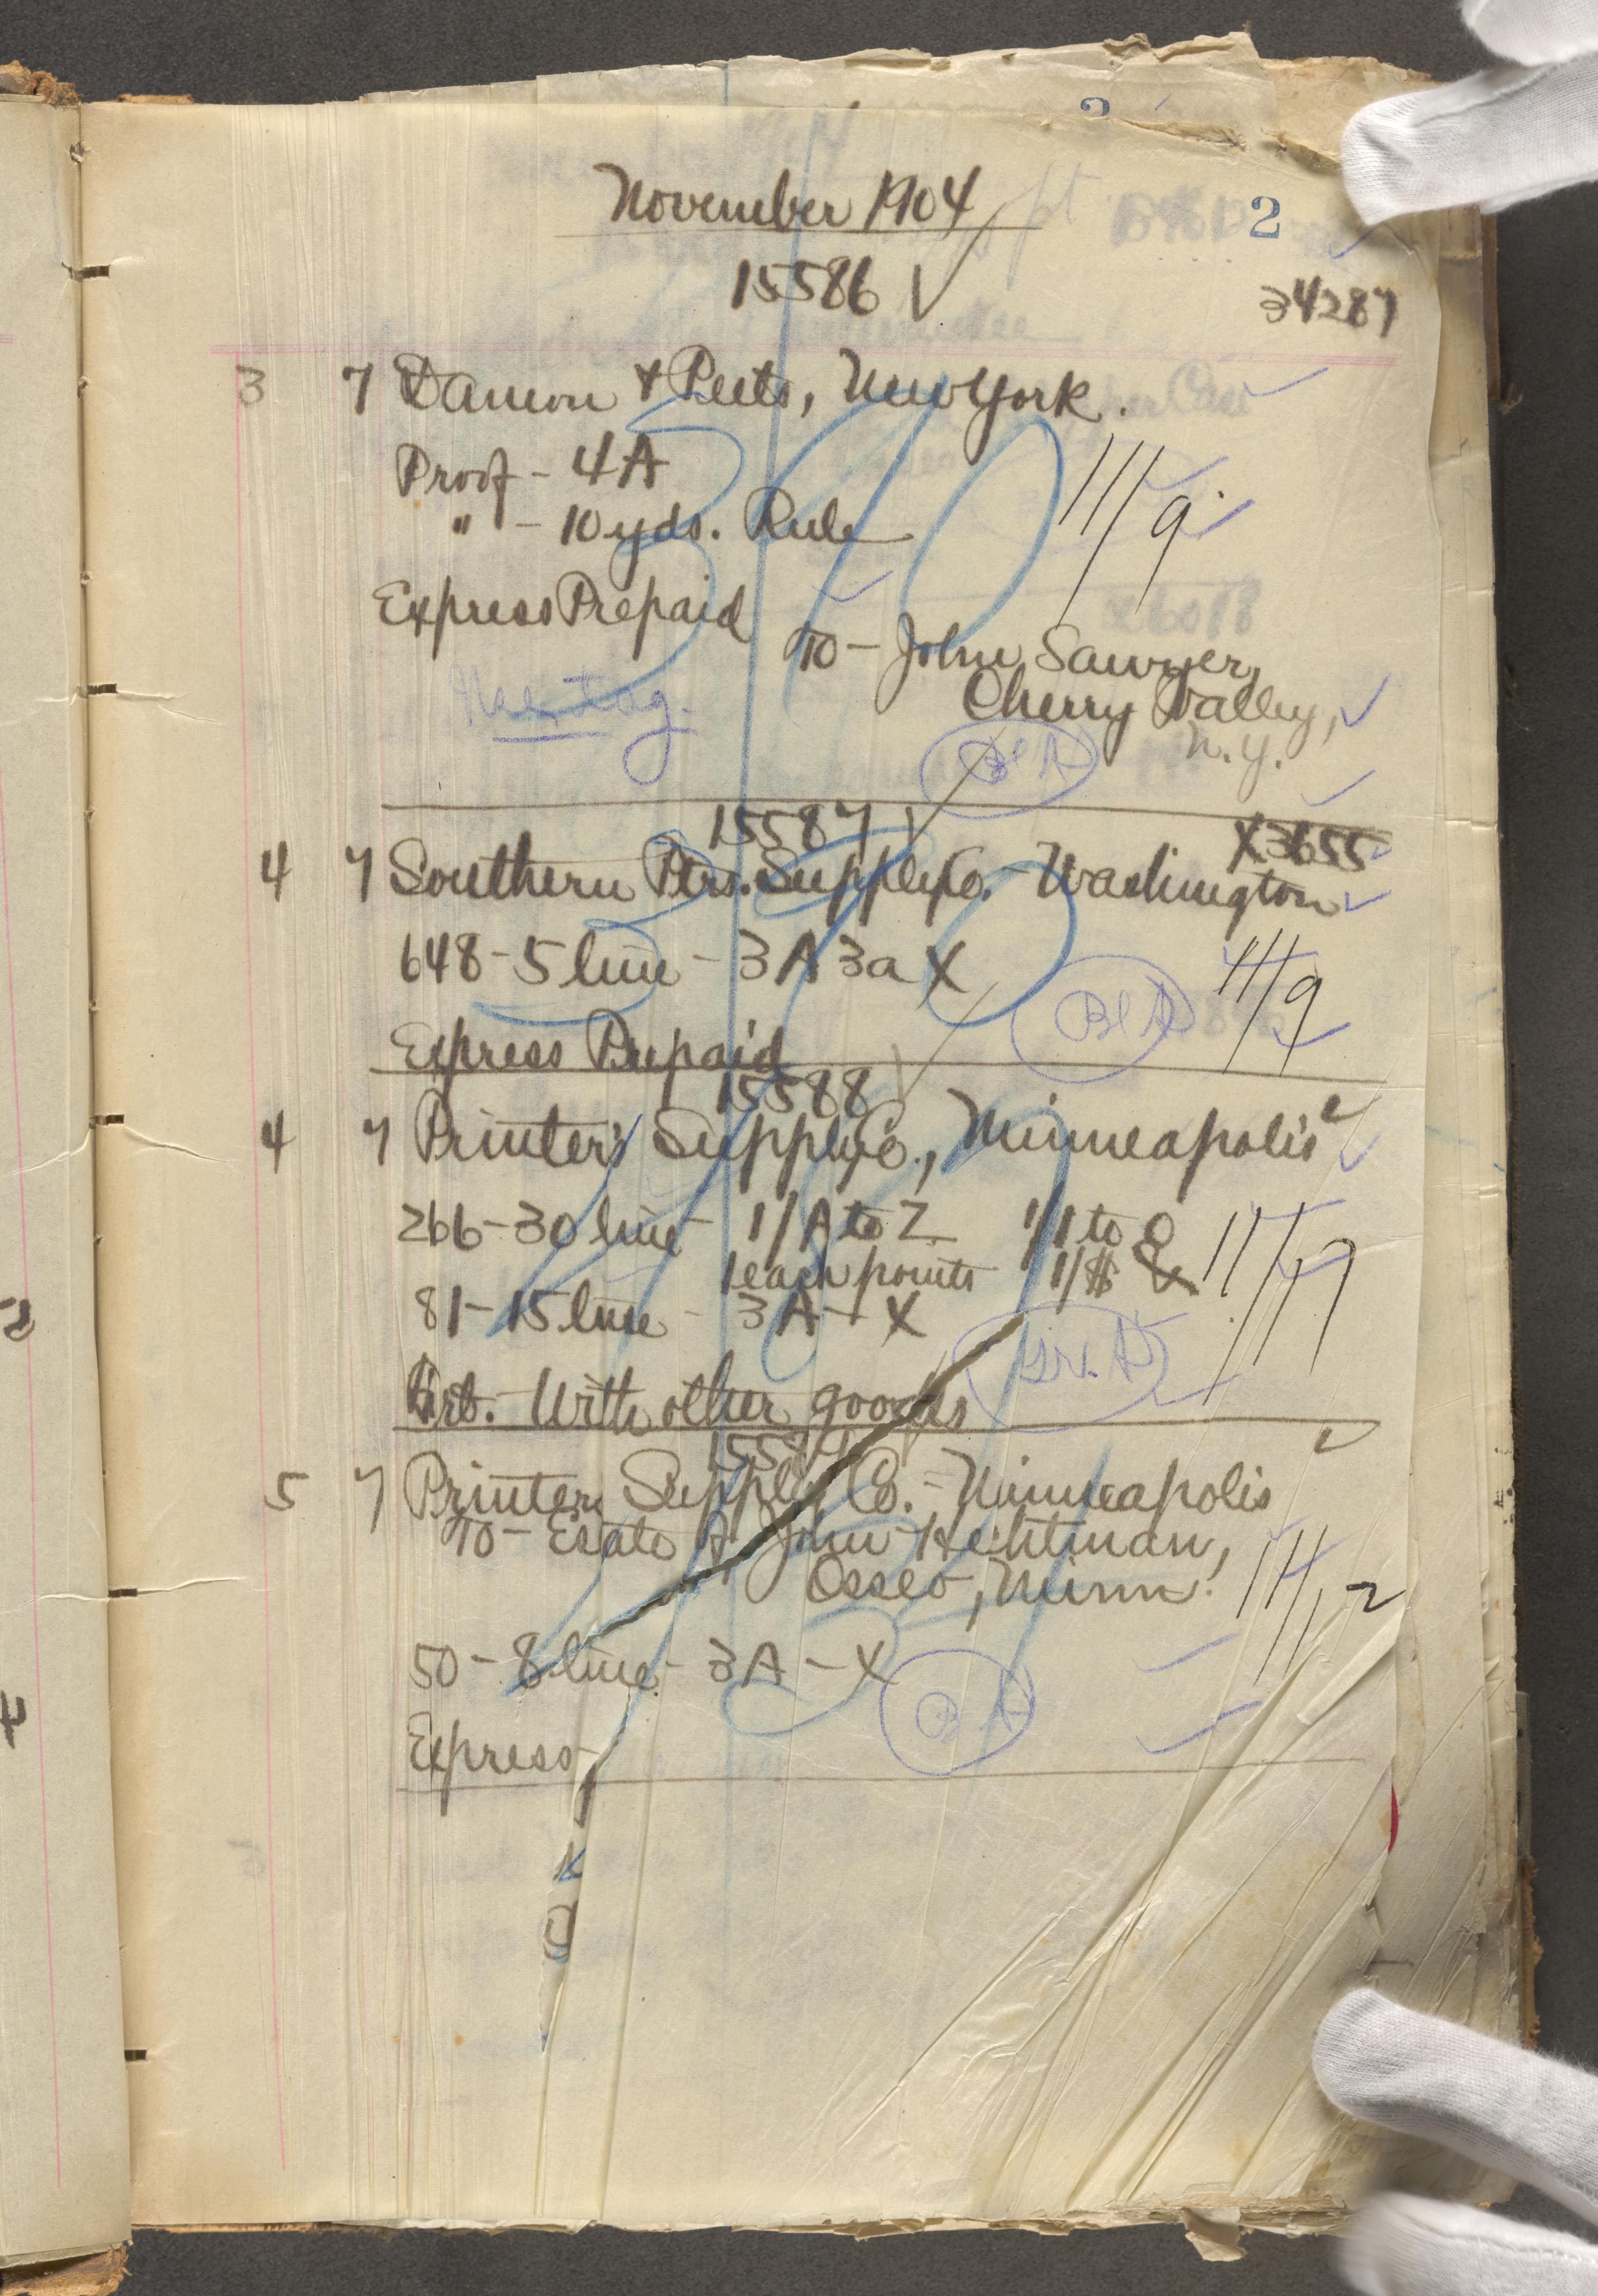 2
November 1904
15586 ✓
34287
3 7 Damon & Peets, New York.
Proof - 4A
" - 10 yds. Rule
11/9
Express Prepaid
To - John Sawyer,
Cherry Valley,
N.Y.
Bl A
15587 ✓
X3655
4 7 Southern Ptrs. Supply Co. - Washington
648 - 5 line - 3A 3a X
11/9
Bl A
Express Prepaid
15588 ✓
4 7 Printer's Supply Co., Minneapolis
266 - 30 line - 1/A to Z 1/1 to 0
1 each points 1/$ &
11/17
81 - 15 line - 3A - X
Gr. A
With other goods
15589
5 7 Printers Supply Co. - Minneapolis
To - Esate of John Hechtman,
Osseo, Minn.
11/12
50 - 8 line - 3A - X
Express